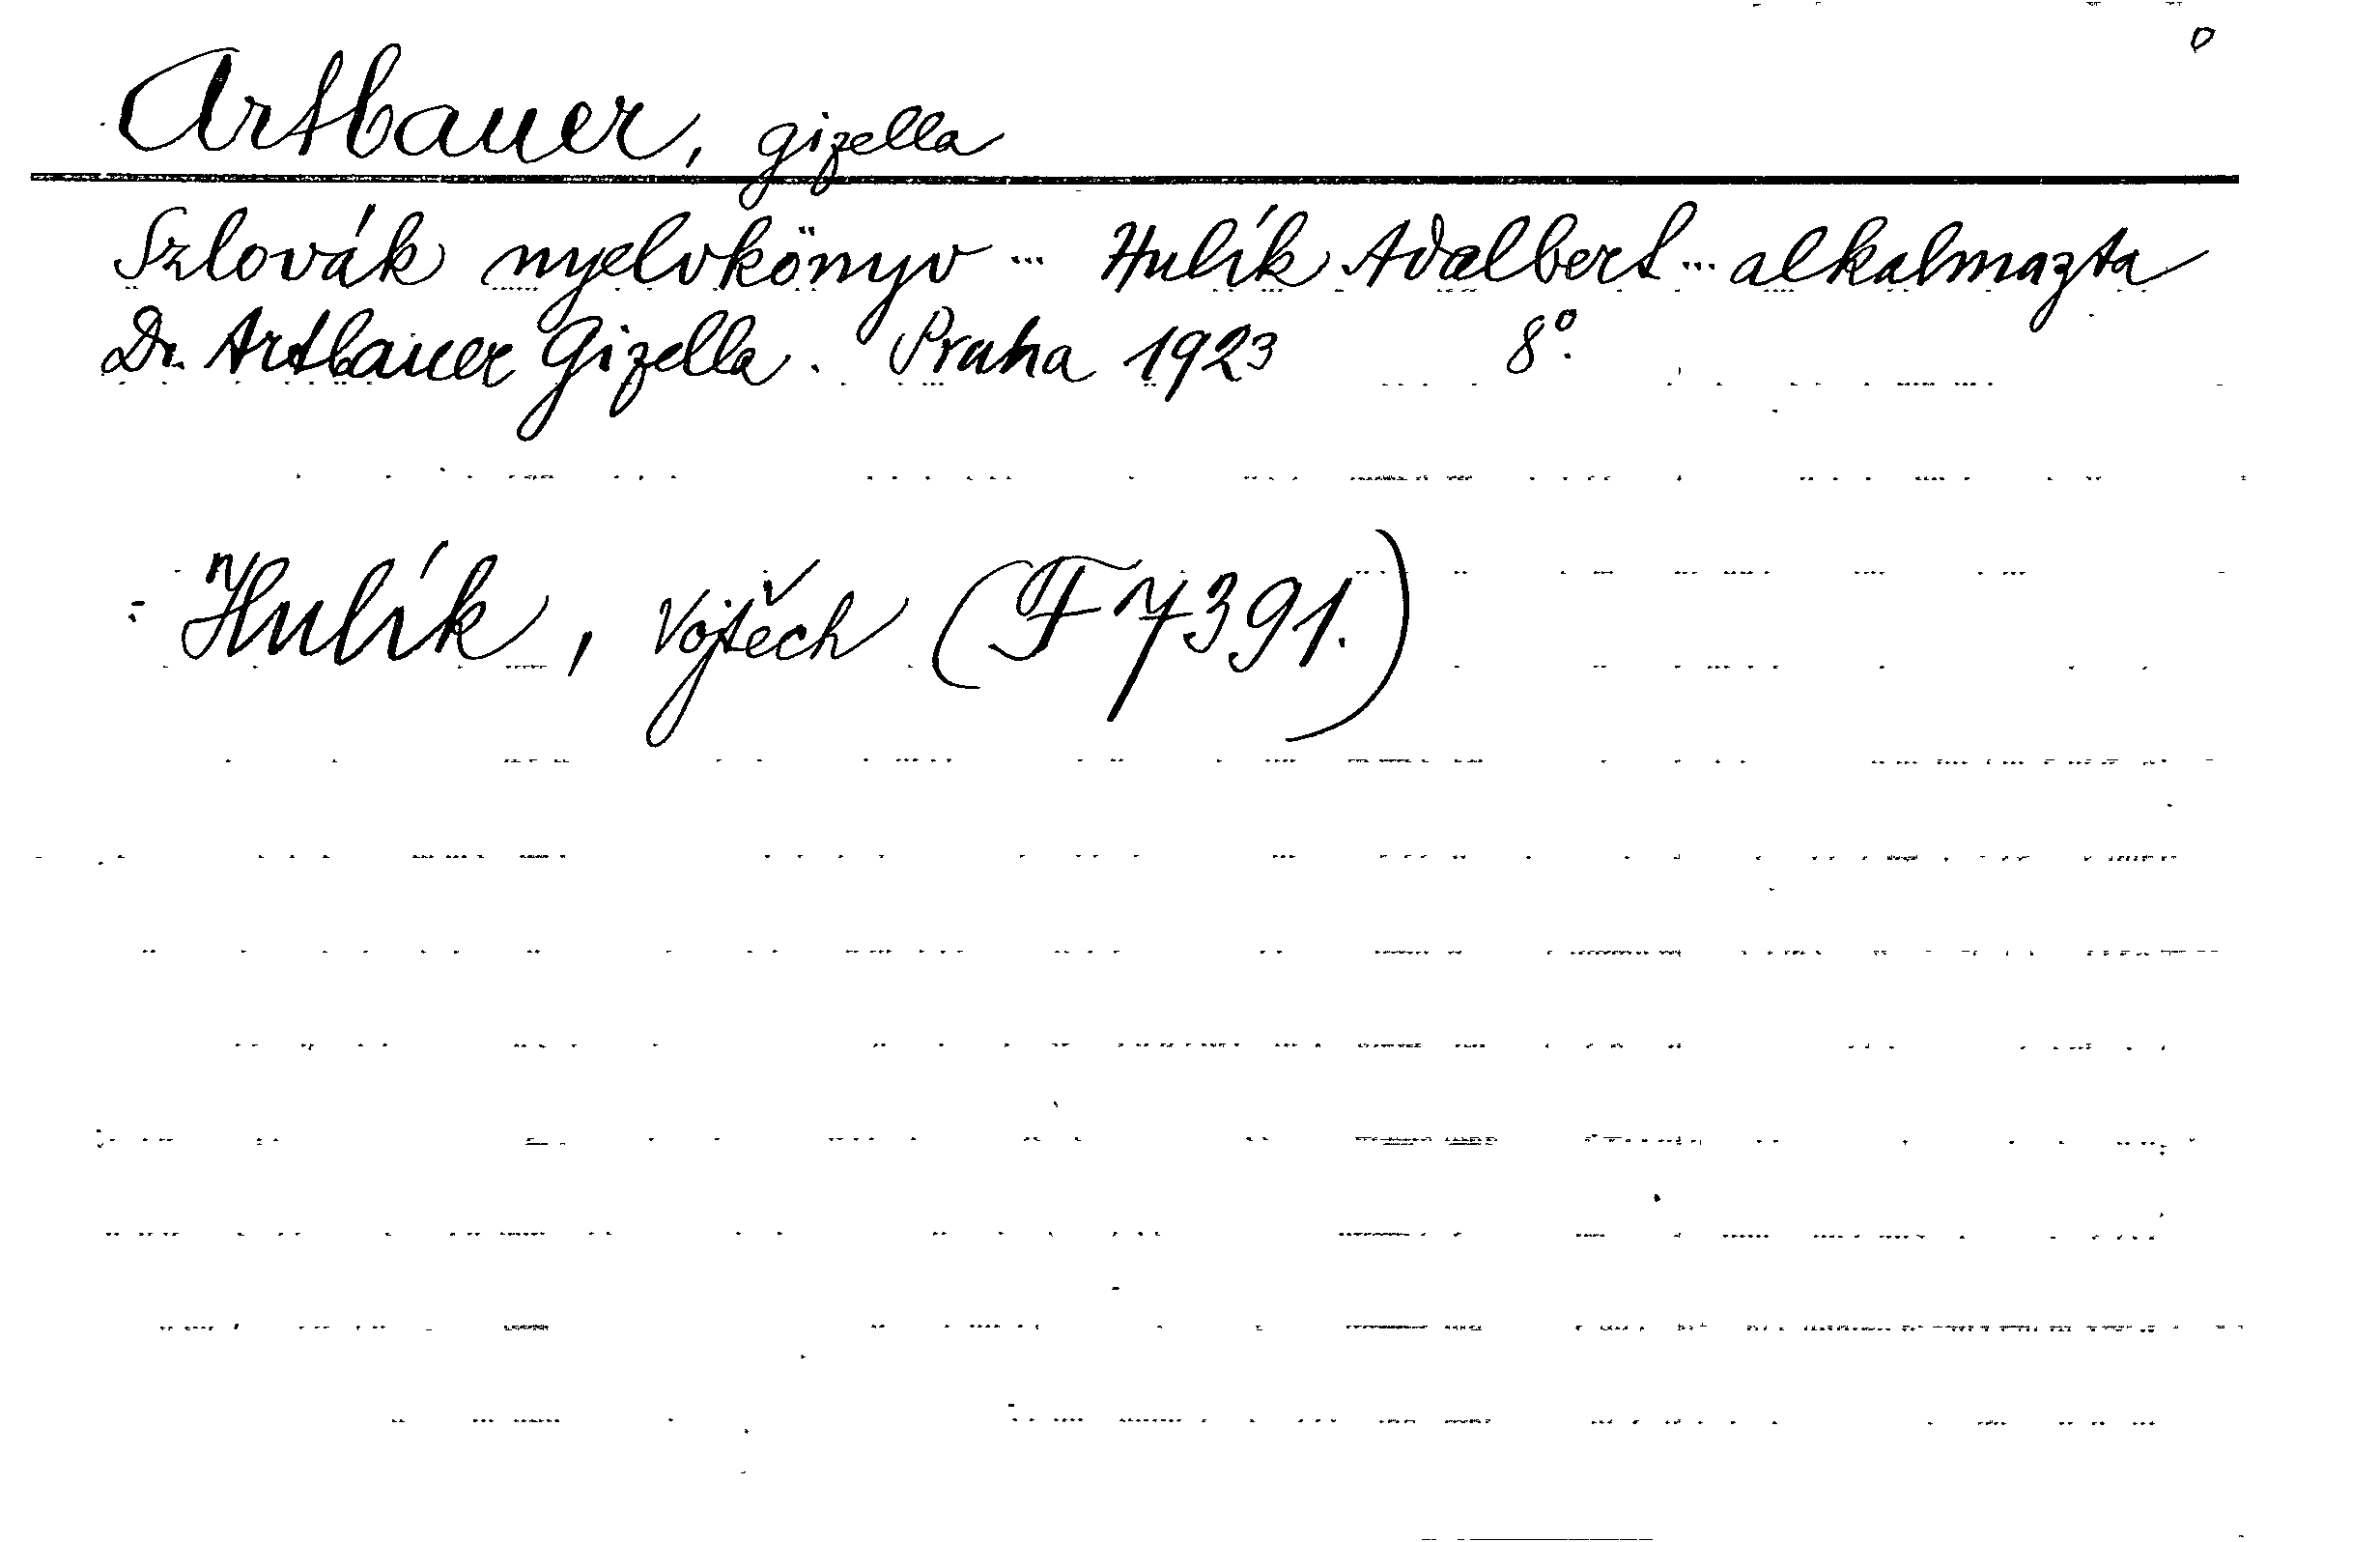 o
Artbauer, Gizella
Szlovák nyelvkönyv ... Hulík Adalbert ... alkalmazta
Dr. Artbauer Gizella. Praha 1923 8°.
= Hulík, Vojtěch (F 7391.)